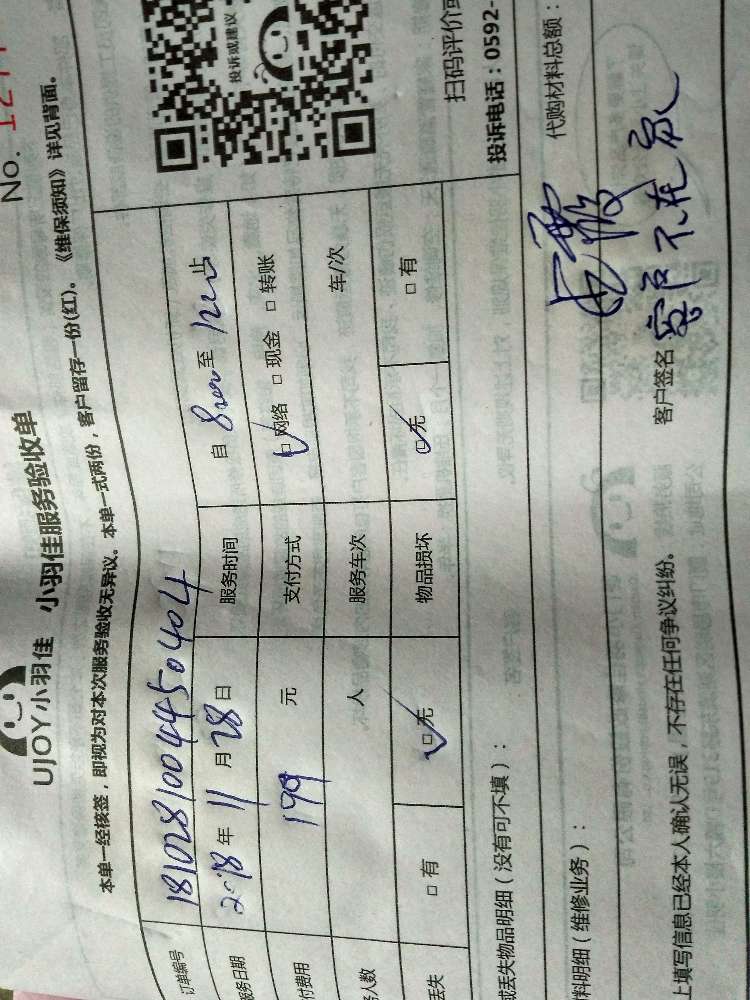 No. 121
UJOY小羽佳 小羽佳服务验收单
本单一经核签，即视为对本次服务验收无异议。本单一式两份，客户留存一份(红)。《维保须知》详见背面。
投诉或建议
订单编号 18102810044450404
服务日期 2018年11月28日 服务时间 自 8:00 至 12:00 止
付费用 199 元 支付方式 ☑网络 □现金 □转账
务人数 人 服务车次 车/次
丢失 □有 ☑无 物品损坏 ☑无 □有
扫码评价或
投诉电话：0592-
或丢失物品明细（没有可不填）：
料明细（维修业务）： 代购材料总额：
上填写信息已经本人确认无误，不存在任何争议纠纷。 客户签名 客户不在家